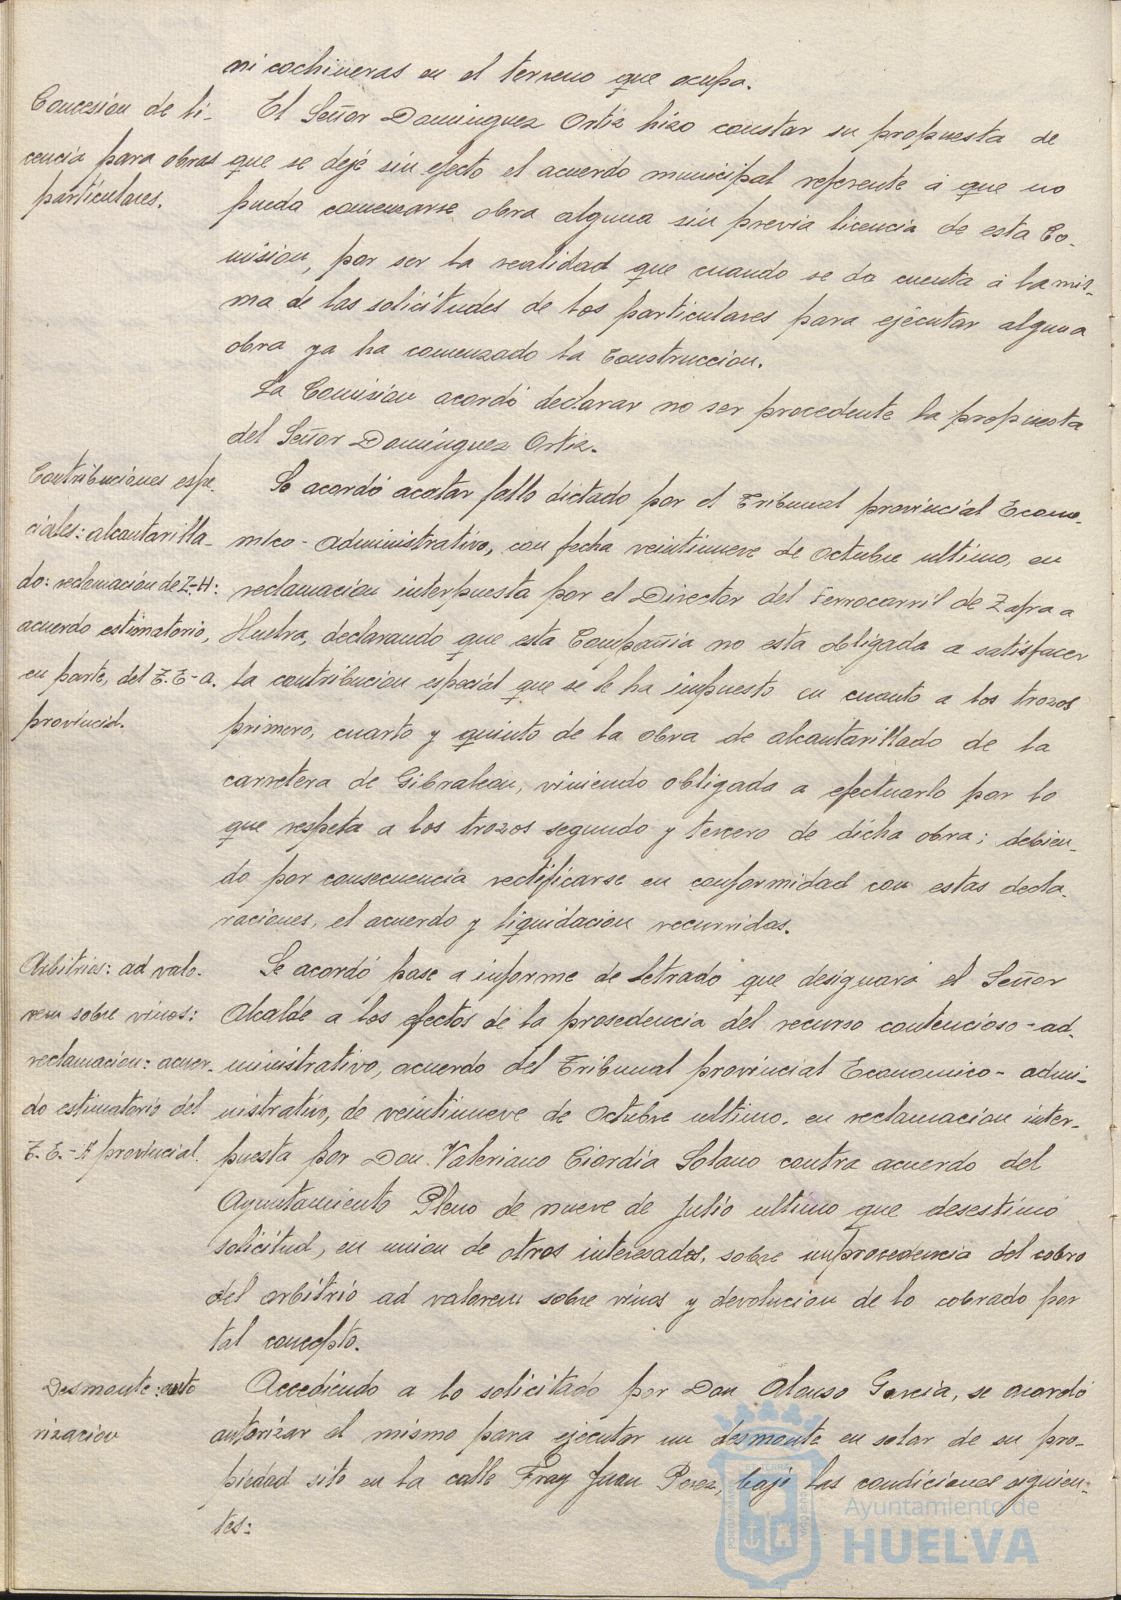 ni cochineras en el terreno que ocupa.
Concesión de li-
cencia para obras
particulares.
El Señor Dominguez Ortiz hizo constar su propuesta de
que se deje sin efecto el acuerdo municipal referente á que no
pueda comenzarse obra alguna sin previa licencia de esta Co-
misión, por ser la realidad que cuando se da cuenta á la mis-
ma de las solicitudes de los particulares para ejecutar alguna
obra ya ha comenzado la construccion.
La Comisión acordó declarar no ser procedente la propuesta
del Señor Dominguez Ortiz.
Contribuciones espe-
ciales: alcantarilla-
do: reclamación de Z-H:
acuerdo estimatorio,
en parte, del T. E-a.
provincial.
Se acordó acatar fallo dictado por el Tribunal provincial Econo-
mico-administrativo, con fecha veintinueve de octubre ultimo, en
reclamación interpuesta por el Director del Ferrocarril de Zafra a
Huelva, declarando que esta Compañia no esta obligada a satisfacer
la contribucion especial que se le ha impuesto en cuanto a los trozos
primero, cuarto y quinto de la obra de alcantarillado de la
carretera de Gibraleon, viniendo obligada a efectuarlo por lo
que respeta a los trozos segundo y tercero de dicha obra; debien-
do por consecuencia rectificarse en conformidad con estas decla-
raciones, el acuerdo y liquidacion recurridas.
Arbitrios: ad valo-
rem sobre vinos:
reclamacion: acuer-
do estimatorio del
T. E.-A provincial.
Se acordó pase a informe de letrado que designará el Señor
Alcalde a los efectos de la prosedencia del recurso contencioso-ad-
ministrativo, acuerdo del Tribunal provincial Economico-admi-
nistrativo, de veintinueve de Octubre ultimo, en reclamacion inter-
puesta por Don Valeriano Ciordia Solano contra acuerdo del
Ayuntamiento Pleno de nueve de Julio ultimo que desestimó
solicitud, en union de otros interesados, sobre improcedencia del cobro
del arbitrio ad valorem sobre vinos y devolucion de lo cobrado por
tal concepto.
Desmonte: auto
rizacion
Accediendo a lo solicitado por Don Alonso Garcia, se acordó
autorizar al mismo para ejecutar un desmonte en solar de su pro-
piedad sito en la calle Fray Juan Perez, bajo las condiciones siguien-
tes:
Ayuntamiento de
HUELVA